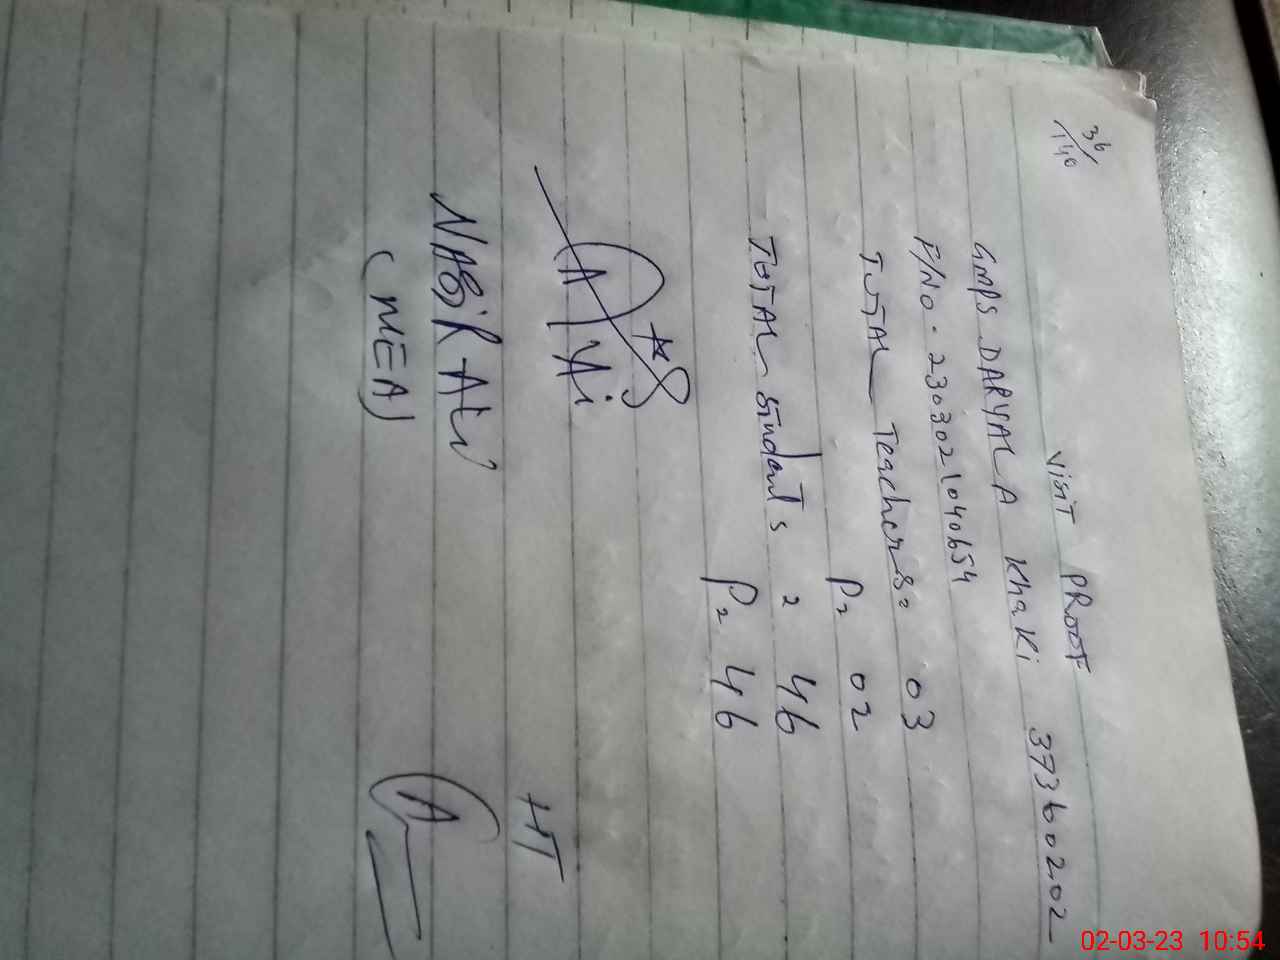 36/140
VISIT PROOF
GMPS DARYALA KhaKi 37360202
F/No. 2303021040654
TOTAL Teachers = 03
P = 02
TOTAL Students = 46
P = 46
HT
NASIR ALi
(MEA)
02-03-23 10:54